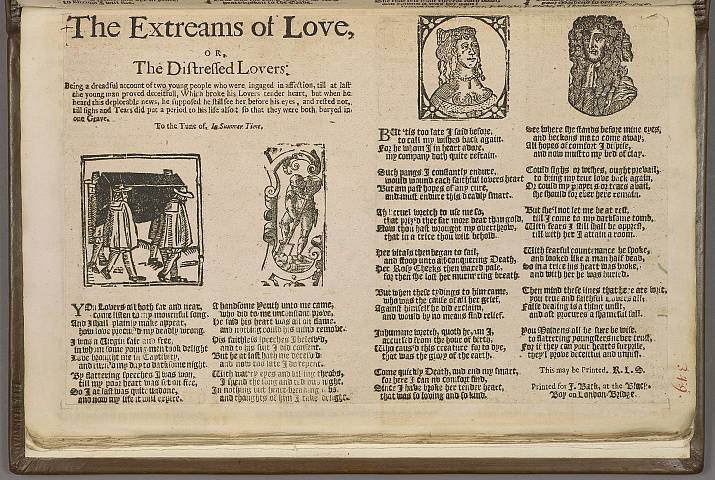 The Extreams of Love,
OR,
The Distressed Lovers:
Being a dreadful account of two young people who were ingaged in affection, till at last
the young man proved deceitful, Which broke his Lovers tender heart, but when he
heard this deplorable news, he supposed he still see her before his eyes, and rested not,
till sighs and Tears did put a period to his life also: so that they were both buryed in
one Grave.
To the Tune of, In Summer Time,
YOu Lovers all both far and near,
come listen to my mournful song,
And I shall plainly make appear,
how love procur'd my deadly wrong.
I was a Virgin fair and free,
in whom some young men took delight
Love brought me in Captivity,
and turn'd my day to darksome night.
By flattering speeches I was won,
till my poor heart was set on fire,
So I at last was quite undone,
and now my life it will expire.
A handsome Youth unto me came,
who did to me unconstant prove,
He said his heart was all on flame,
and nothing could his mind remove.
His faithless speeches I believ'd,
and to his suit I did consent,
But he at last hath me deceiv'd
and now too late I do repent.
With watry eyes and killing throbs,
I spend the long and tedious night,
In nothing but heart-breaking sobs,
and thoughts of him I take delight.
BUt 'tis too late I said before,
to call my wishes back again,
For he whom I in heart adore,
my company doth quite refrain.
Such pangs I constantly endure,
would wound each faithful lovers heart
But am past hopes of any cure,
and must endure this deadly smart.
Ah! cruel wretch to use me so,
that priz'd thee far more dear than gold,
Now thou hast wrought my overthrow,
that in a trice thou wilt behold.
Her vitals then began to fail,
and stoop unto all-conquering Death,
Her Rosy Cheeks then waxed pale,
for then she lost her murmering breath.
But when these tydings to him came,
who was the cause of all her grief,
Against himself he did exclaim,
and would by no means find relief.
Inhumane wretch, quoth he, am I,
accursed from the hour of birth,
Who caus'd this creature for to dye,
that was the glory of the earth.
Come quickly Death, and end my smart,
for here I can no comfort find,
Since I have broke her tender heart,
that was so loving and so kind.
See where she stands before mine eyes,
and beckons me to come away,
All hopes of comfort I despise,
and now must to my bed of clay.
Could sighs or wishes, ought prevail,
to bring my true love back again,
Or could my prayers or tears avail,
she should for ever here remain.
But she'l not let me be at rest,
till I come to my darksome tomb,
With fears I still shall be opprest,
till with her I attain a room.
With fearful countenance he spoke,
and looked like a man half dead,
So in a trice his heart was broke,
and with her he was buried.
Then mind these lines that here are writ,
you true and faithful Lovers all,
False dealing is a thing unfit,
and oft procures a shameful fall.
You Maidens all be sure be wise,
to flattering youngsters never trust,
For if they can your hearts surprise,
they'l prove deceitful and unjust.
This may be Printed, R. L. S.
Printed for J. Back, at the Black-
Boy on London-Bridge.